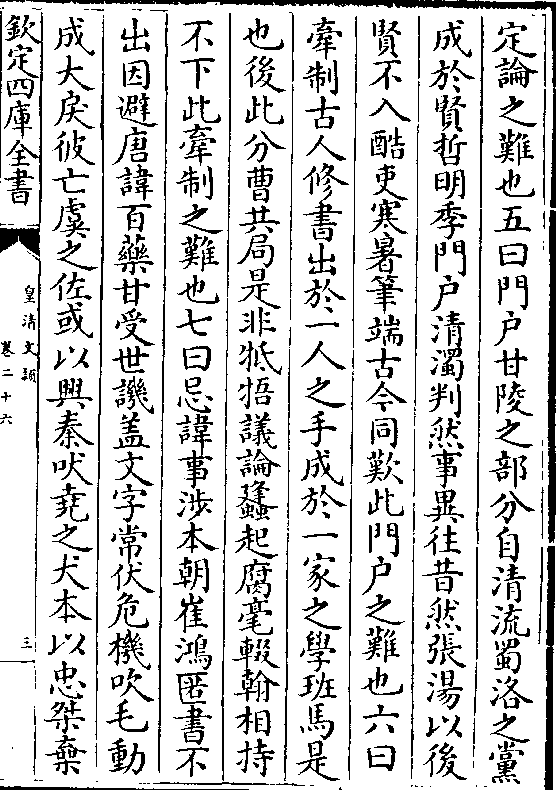 定論之難也五曰門户甘陵之部分自清流蜀洛之黨
成於賢哲明季門户清濁判然事異往昔然張湯以後
賢不入酷吏寒暑筆端古今同歎此門户之難也六曰
牽制古人修書出於一人之手成於一家之學班馬是
也後此分曹共局是非牴牾議論蠭起腐毫輟翰相持
不下此牽制之難也七曰忌諱事涉本朝崔鴻匿書不
出因避唐諱百藥甘受世譏盖文字常伏危機吹毛動
成大戾彼亡虞之佐或以興秦吠堯之犬本以忠桀棄
欽定四庫全書
皇清文頴
卷二十六
三